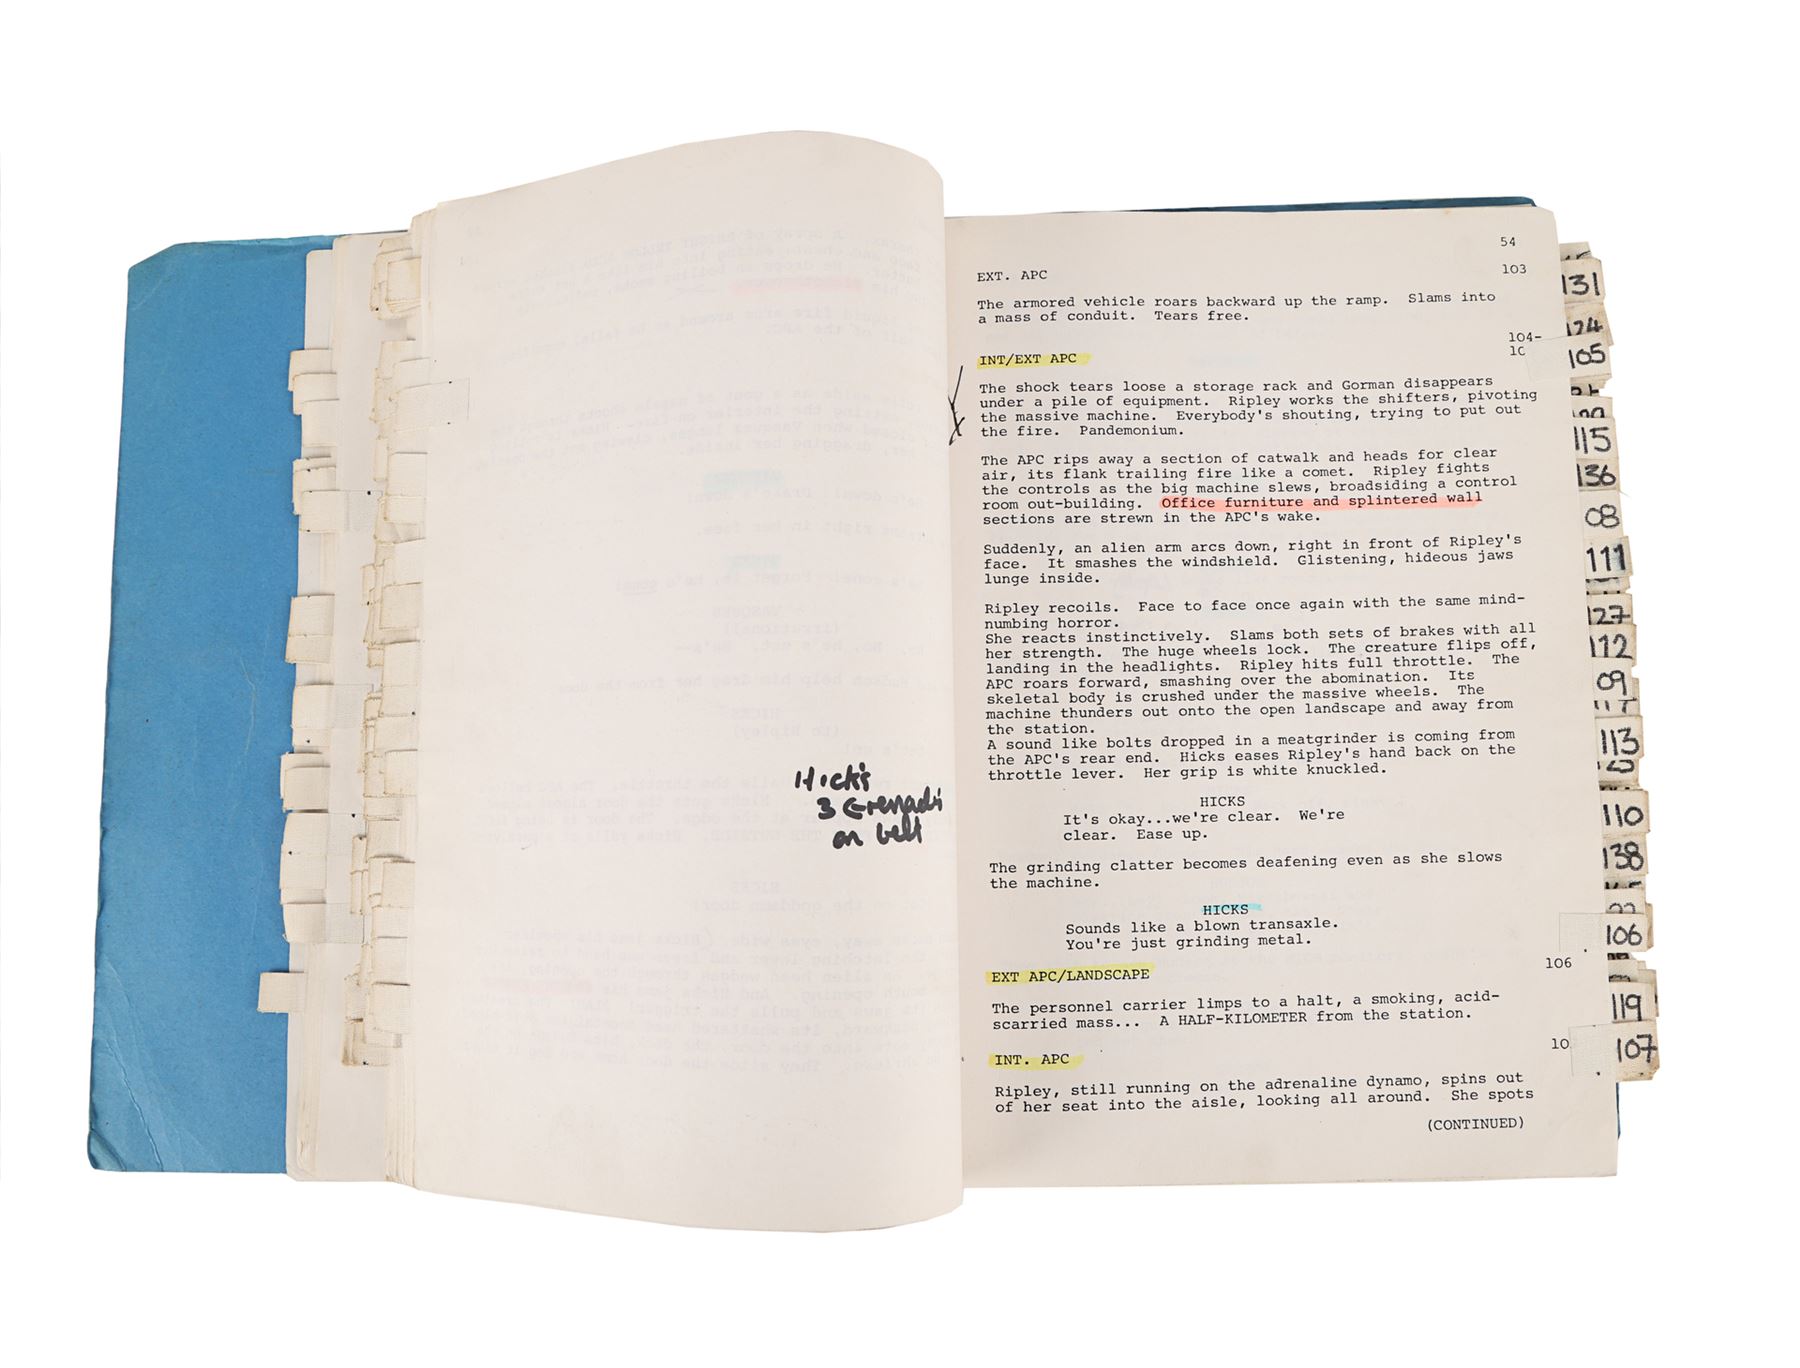 Hick's
3 Grenade's
on belt
54
EXT. APC 103
The armored vehicle roars backward up the ramp. Slams into
a mass of conduit. Tears free.
104-
10
INT/EXT APC
The shock tears loose a storage rack and Gorman disappears
under a pile of equipment. Ripley works the shifters, pivoting
the massive machine. Everybody's shouting, trying to put out
the fire. Pandemonium.
The APC rips away a section of catwalk and heads for clear
air, its flank trailing fire like a comet. Ripley fights
the controls as the big machine slews, broadsiding a control
room out-building. Office furniture and splintered wall
sections are strewn in the APC's wake.
Suddenly, an alien arm arcs down, right in front of Ripley's
face. It smashes the windshield. Glistening, hideous jaws
lunge inside.
Ripley recoils. Face to face once again with the same mind-
numbing horror.
She reacts instinctively. Slams both sets of brakes with all
her strength. The huge wheels lock. The creature flips off,
landing in the headlights. Ripley hits full throttle. The
APC roars forward, smashing over the abomination. Its
skeletal body is crushed under the massive wheels. The
machine thunders out onto the open landscape and away from
the station.
A sound like bolts dropped in a meatgrinder is coming from
the APC's rear end. Hicks eases Ripley's hand back on the
throttle lever. Her grip is white knuckled.
HICKS
It's okay...we're clear. We're
clear. Ease up.
The grinding clatter becomes deafening even as she slows
the machine.
HICKS
Sounds like a blown transaxle.
You're just grinding metal.
106
EXT APC/LANDSCAPE
The personnel carrier limps to a halt, a smoking, acid-
scarried mass... A HALF-KILOMETER from the station.
10
INT. APC
Ripley, still running on the adrenaline dynamo, spins out
of her seat into the aisle, looking all around. She spots
(CONTINUED)
131
124
105
115
136
08
111
127
112
09
113
110
138
106
119
107